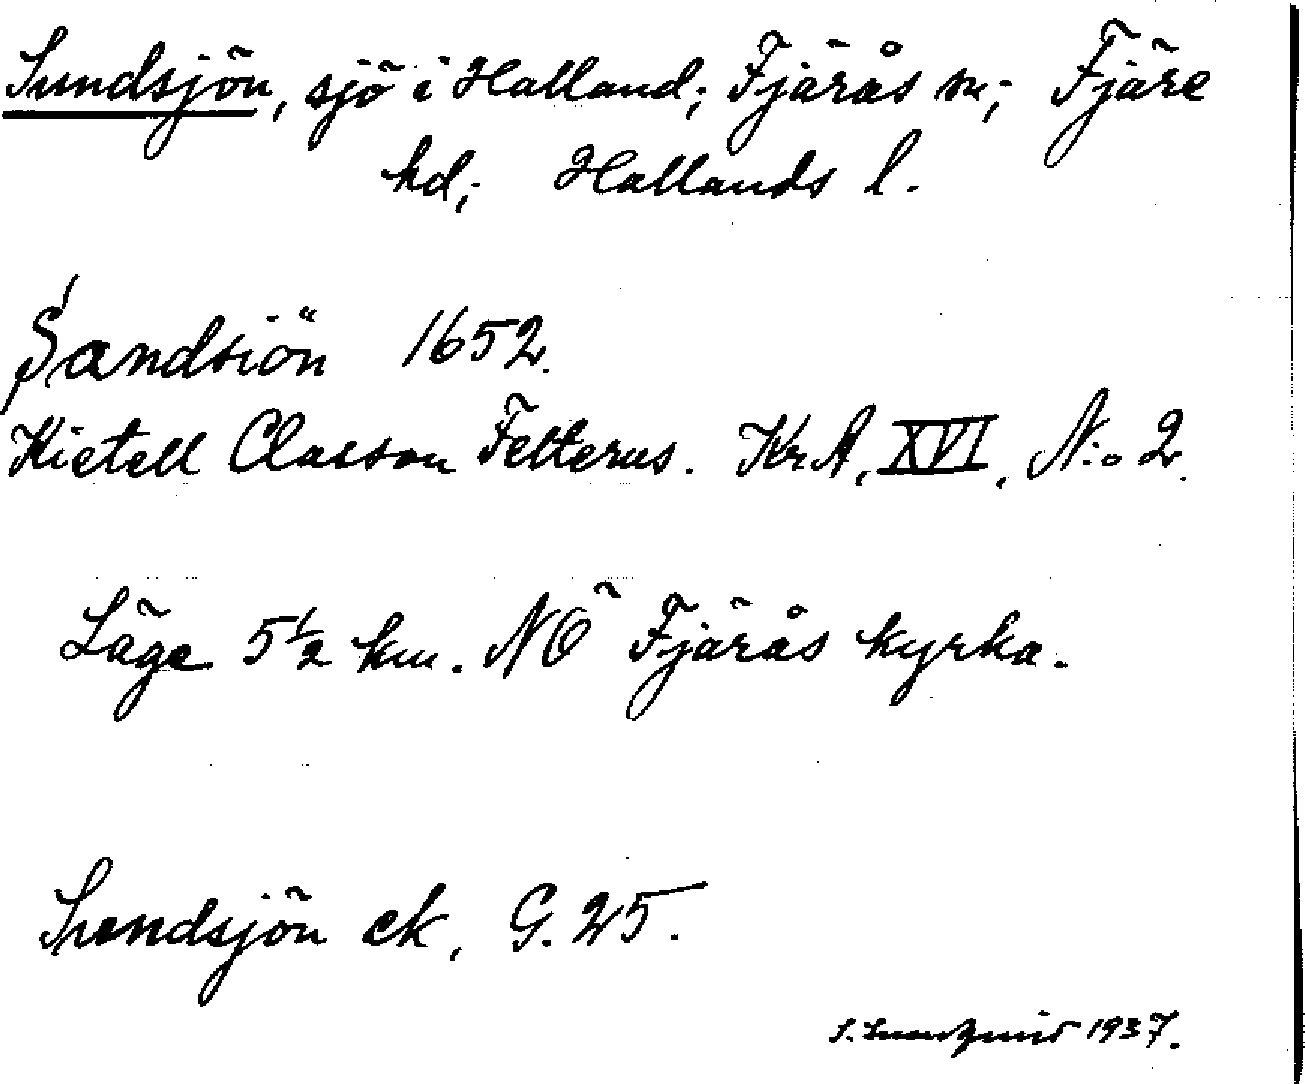 Sundsjön, sjö i Halland; Fjärås sn; Fjäre
hd; Hallands l.
Sandsiön 1652.
Kietell Classon Felterus. KrA, XVI, N:o 2.
Läge 5 1/2 km. NÖ Fjärås kyrka.
Sundsjön ek, G. 25.
1937.